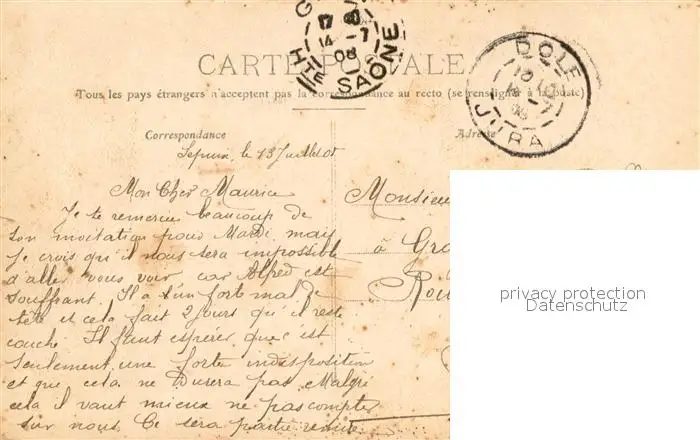 G
17
14 - 7
08
HTE SAONE
DOLE
JURA
CARTE POSTALE
Tous les pays étrangers n'acceptent pas la correspondance au recto (se renseigner à la poste)
Correspondance
Adresse
le 13 Juillet 08
Mon Cher Maurice
Je te remercie beaucoup de
ton invitation pour Mardi mais
je crois qu'il nous sera impossible
d'aller vous voir car Alfred est
souffrant. Il a un fort mal de
tête et cela fait 2 jours qu'il reste
couché. Il faut espérer que c'est
seulement une forte indisposition
et que cela ne durera pas Malgré
cela il vaut mieux ne pas compter
sur nous Ce sera partie remise
Monsieur
à Gra
Rou
privacy protection
Datenschutz